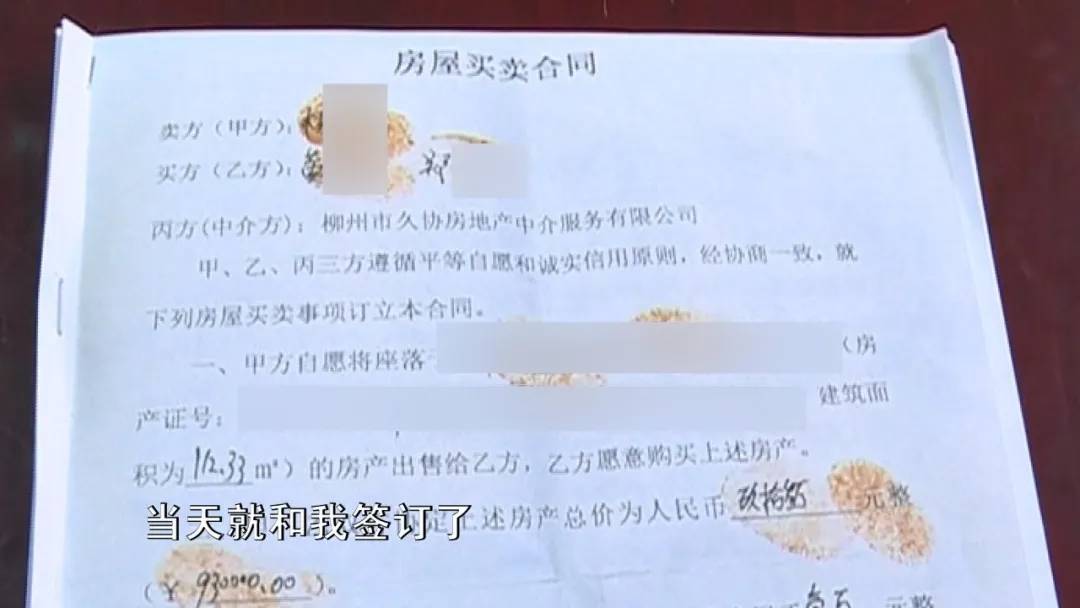 房屋买卖合同
卖方（甲方）：
买方（乙方）： 郑
丙方(中介方)：柳州市久协房地产中介服务有限公司
甲、乙、丙三方遵循平等自愿和诚实信用原则，经协商一致，就
下列房屋买卖事项订立本合同。
一、甲方自愿将座落 （房
产证号： 建筑面
积为 112.33 m²）的房产出售给乙方，乙方愿意购买上述房产。
定上述房产总价为人民币 玖拾叁 元整
当天就和我签订了
（￥ 930000.00 ）。
元整